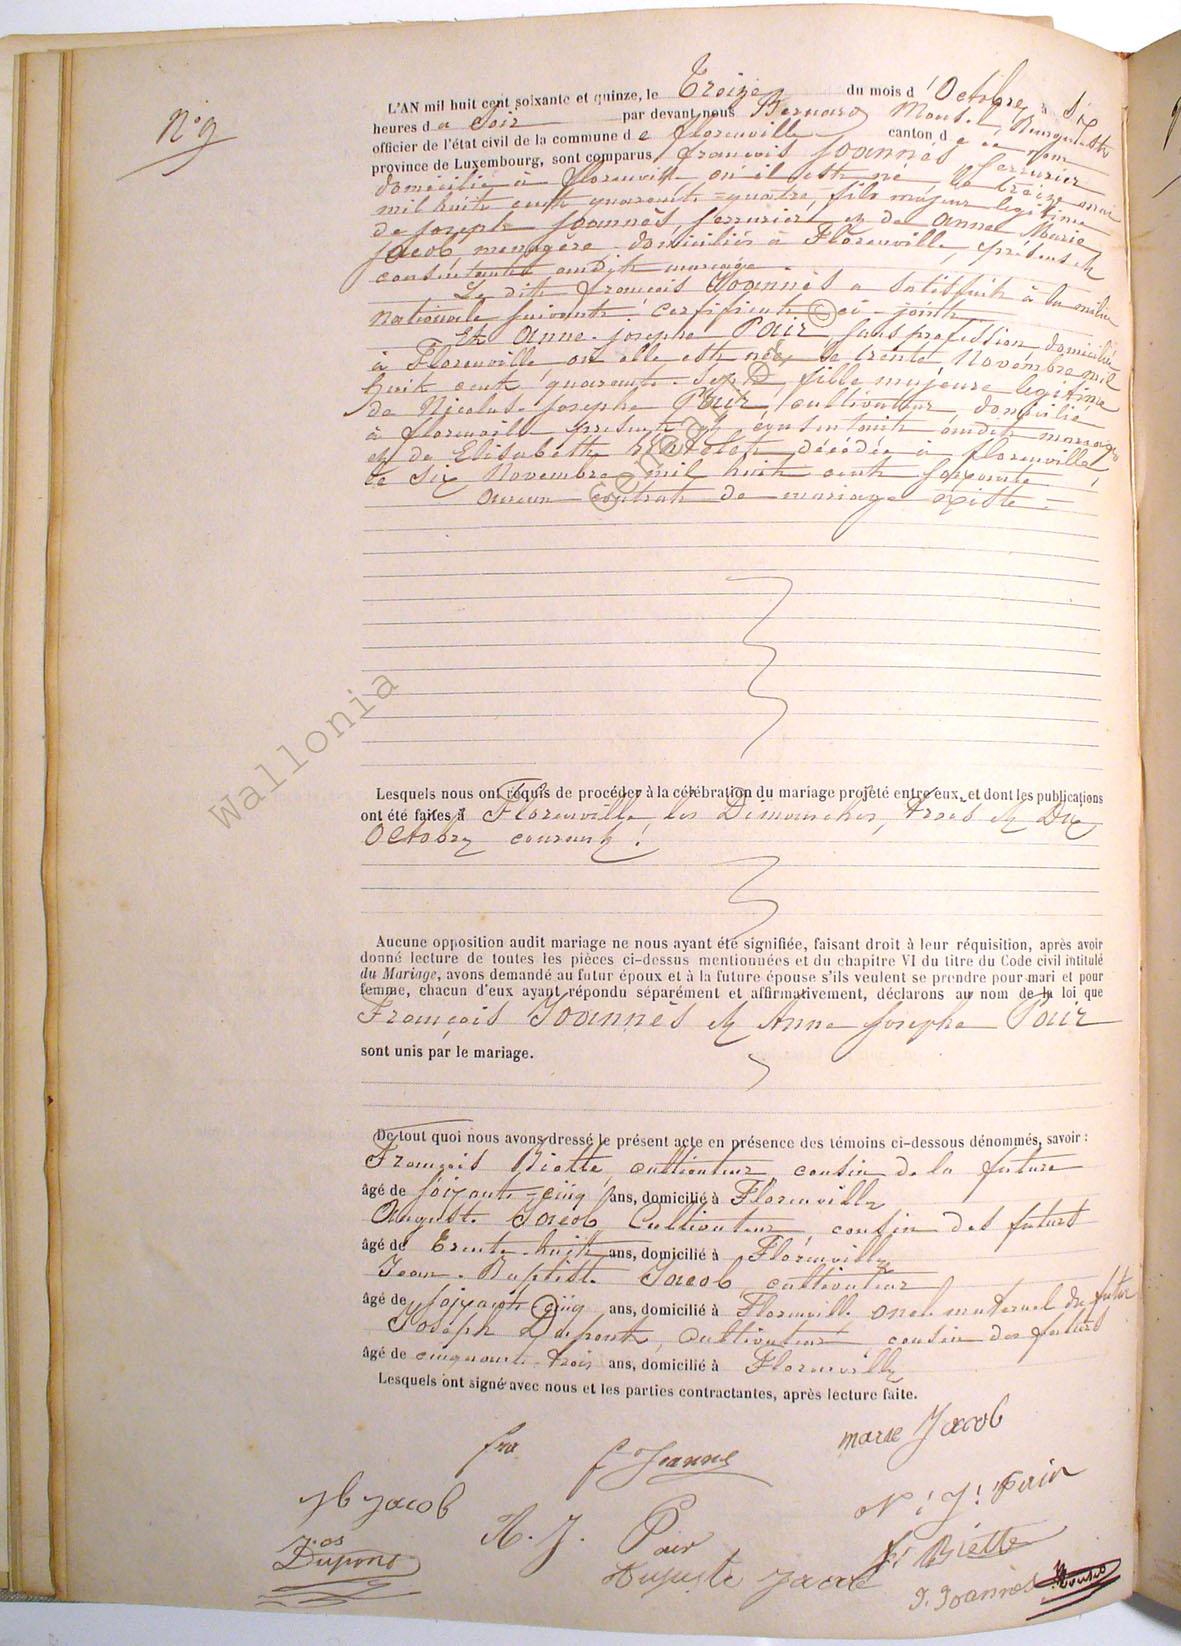 N° 9
L'AN mil huit cent soixante et quinze, le Treize du mois d'Octobre à six
heures d u soir par devant nous Bernard Mous. Bourgmestre
officier de l'état civil de la commune d e florenville canton d e ce nom
province de Luxembourg, sont comparus françois Joannès serrurier
domicilié à florenville où il est né le treize mai
mil huit cent quarante-quatre, fils majeur légitime
de joseph Joannès, serrurier et de anne Marie
jacob, menagère domiciliés à Florenville, présens et
consentants audit mariage.
Le dit françois Joannès a satisfait à la milice
Nationale suivant certificat ci-joint
Et Anne-josephe Pair sans profession domiciliée
à Florenville, où elle est née le trente Novembre mil
huit cent quarante-sept, fille majeure légitime
de Nicolas-josephe Pair, cultivateur domicilié
à florenville présent et consentant audit mariage
et de Elisabeth décédée à florenville,
le six Novembre mil huit cent soixante
aucun contrat de mariage existe.
© geneal
Wallonia
Lesquels nous ont requis de procéder à la célébration du mariage projeté entre eux, et dont les publications
ont été faites à Florenville, les Dimanches, trois et Dix
Octobre courant.
Aucune opposition audit mariage ne nous ayant été signifiée, faisant droit à leur réquisition, après avoir
donné lecture de toutes les pièces ci-dessus mentionnées et du chapitre VI du titre du Code civil intitulé
du Mariage, avons demandé au futur époux et à la future épouse s'ils veulent se prendre pour mari et pour
femme, chacun d'eux ayant répondu séparément et affirmativement, déclarons au nom de la loi que
François Joannès et Anne Josephe Pair
sont unis par le mariage.
De tout quoi nous avons dressé le présent acte en présence des témoins ci-dessous dénommés, savoir :
François Biette, cultivateur, cousin de la future
âgé de soixante-cinq ans, domicilié à Florenville
Auguste Jacob, Cultivateur, cousin des futurs
âgé de trente-huit ans, domicilié à Florenville
Jean-Baptiste Jacob, cultivateur
âgé de soixante cinq ans, domicilié à Florenville oncle maternel du futur
Joseph Dupont, cultivateur cousin des futurs
âgé de cinquante-trois ans, domicilié à Florenville
Lesquels ont signé avec nous et les parties contractantes, après lecture faite.
fra f Joanne marie Jacob
J b jacob A. J. Pair N. J. Pair
Jos Dupont Auguste Jacob fs Biette
J. Joannès